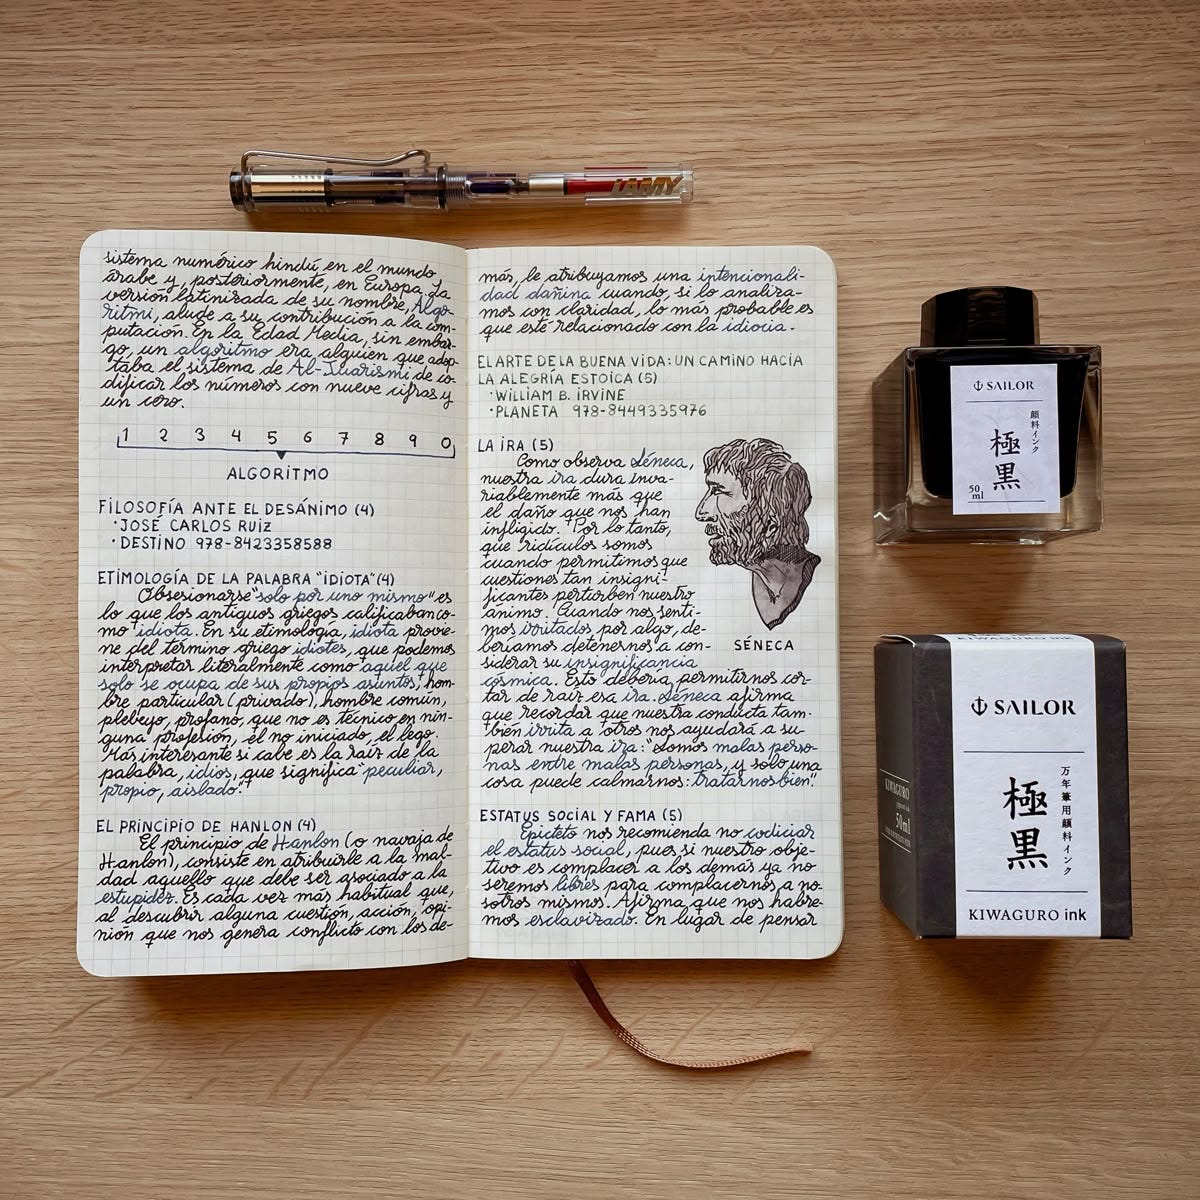 LAMY
sistema numérico hindú, en el mundo
árabe y, posteriormente, en Europa. La
versión latinizada de su nombre, Algo-
ritmi, alude a su contribución a la com-
putación. En la Edad Media, sin embar-
go, un algoritmo era alguien que adop-
taba el sistema de Al-Juarismi de co-
dificar los números con nueve cifras y
un cero.
1 2 3 4 5 6 7 8 9 0
ALGORITMO
FILOSOFÍA ANTE EL DESÁNIMO (4)
· JOSÉ CARLOS RUIZ
· DESTINO 978-8423358588
ETIMOLOGÍA DE LA PALABRA "IDIOTA" (4)
Obsesionarse "solo por uno mismo" es
lo que los antiguos griegos calificaban co-
mo idiota. En su etimología, idiota provie-
ne del término griego idiotes, que podemos
interpretar literalmente como aquel que
solo se ocupa de sus propios asuntos, hom-
bre particular (privado), hombre común,
plebeyo, profano, que no es técnico en nin-
guna profesión, el no iniciado, el lego.
Más interesante si cabe es la raíz de la
palabra, idios, que significa "peculiar,
propio, aislado".
EL PRINCIPIO DE HANLON (4)
El principio de Hanlon (o navaja de
Hanlon), consiste en atribuirle a la mal-
dad aquello que debe ser asociado a la
estupidez. Es cada vez más habitual que,
al descubrir alguna cuestión, acción, opi-
nión que nos genera conflicto con los de-
más, le atribuyamos una intencionali-
dad dañina cuando, si lo analiza-
mos con claridad, lo más probable es
que esté relacionado con la idiocia.
EL ARTE DE LA BUENA VIDA: UN CAMINO HACIA
LA ALEGRÍA ESTOICA (5)
· WILLIAM B. IRVINE
· PLANETA 978-8449335976
LA IRA (5)
Como observa Séneca,
nuestra ira dura inva-
riablemente más que
el daño que nos han
infligido. Por lo tanto,
que ridículos somos
cuando permitimos que
cuestiones tan insigni-
ficantes perturben nuestro
ánimo. Cuando nos senti-
mos irritados por algo, de-
beríamos detenernos a con-
siderar su insignificancia
cósmica. Esto debería permitirnos cor-
tar de raíz esa ira. Séneca afirma
que recordar que nuestra conducta tam-
bién irrita a otros nos ayudará a su-
perar nuestra ira: "Somos malas perso-
nas entre malas personas, y solo una
cosa puede calmarnos: tratarnos bien".
SÉNECA
ESTATUS SOCIAL Y FAMA (5)
Epicteto nos recomienda no codiciar
el estatus social, pues si nuestro obje-
tivo es complacer a los demás ya no
seremos libres para complacernos a no-
sotros mismos. Afirma que nos habre-
mos esclavizado. En lugar de pensar
SAILOR
顔料インク
極黒
50
ml
KIWAGURO ink
SAILOR
万年筆用顔料インク
極黒
KIWAGURO ink
KIWAGURO
50ml